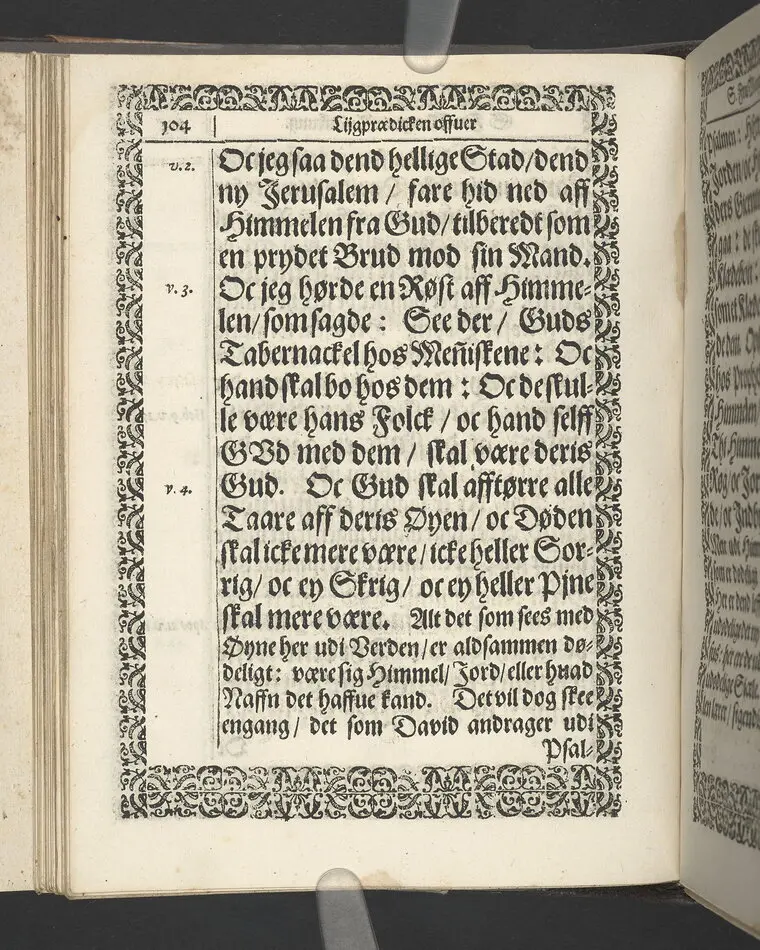 104 Lijgprædicken offuer
v. 2. Oc jeg saa dend hellige Stad/dend
ny Jerusalem / fare hid ned aff
Himmelen fra Gud/ tilberedt som
en prydet Brud mod sin Mand.
v. 3. Oc jeg hørde en Røst aff Himme-
len/ som sagde : See der / Guds
Tabernackel hos Meñiskene : Oc
hand skal bo hos dem : Oc de skul-
le være hans Folck / oc hand selff
GVd med dem / skal være deris
v. 4. Gud. Oc Gud skal afftørre alle
Taare aff deris Øyen/ oc Døden
skal icke mere være/ icke heller Sor-
rig/ oc ey Skrig/ oc ey heller Pjne
skal mere være. Alt det som sees med
Øyne her udi Verden/ er aldsammen dø-
deligt : være sig Himmel/ Jord/ eller huad
Naffn det haffue kand. Det vil dog skee
engang/ det som David andrager udi
Psal-